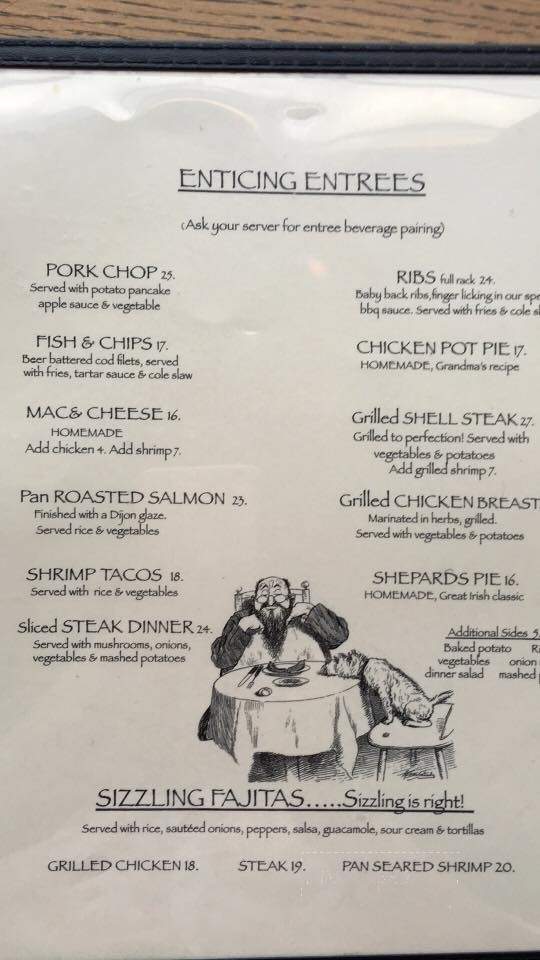 ENTICING ENTREES
(Ask your server for entree beverage pairing)
PORK CHOP 25.
Served with potato pancake
apple sauce & vegetable
FISH & CHIPS 17.
Beer battered cod filets, served
with fries, tartar sauce & cole slaw
MAC& CHEESE 16.
HOMEMADE
Add chicken 4. Add shrimp 7.
Pan ROASTED SALMON 23.
Finished with a Dijon glaze.
Served rice & vegetables
SHRIMP TACOS 18.
Served with rice & vegetables
Sliced STEAK DINNER 24.
Served with mushrooms, onions,
vegetables & mashed potatoes
RIBS full rack 24.
Baby back ribs,finger licking in our
bbq sauce. Served with fries & cole
CHICKEN POT PIE 17.
HOMEMADE, Grandma's recipe
Grilled SHELL STEAK 27.
Grilled to perfection! Served with
vegetables & potatoes
Add grilled shrimp 7.
Grilled CHICKEN BREAST
Marinated in herbs, grilled.
Served with vegetables & potatoes
SHEPARDS PIE 16.
HOMEMADE, Great Irish classic
Additional Sides 5.
Baked potato
vegetables onion
dinner salad mashed
SIZZLING FAJITAS.....Sizzling is right!
Served with rice, sautéed onions, peppers, salsa, guacamole, sour cream & tortillas
GRILLED CHICKEN 18. STEAK 19. PAN SEARED SHRIMP 20.